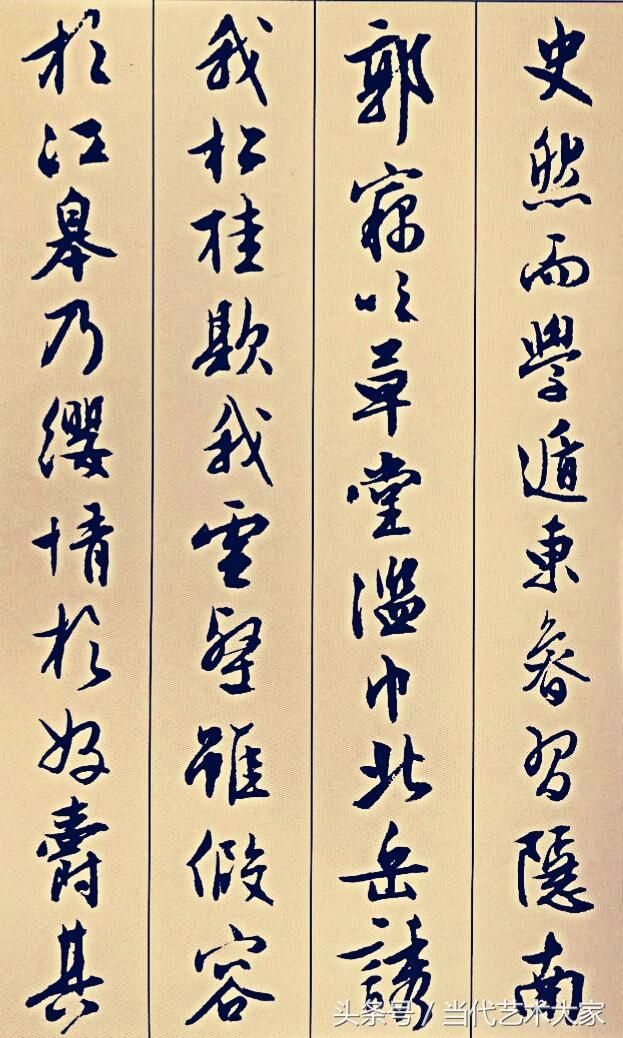 史然而學遁東魯習隱南
郭竊吹草堂濫巾北岳誘
我松桂欺我雲壑雖假容
於江皋乃纓情於好爵其
头条号/当代艺术大家